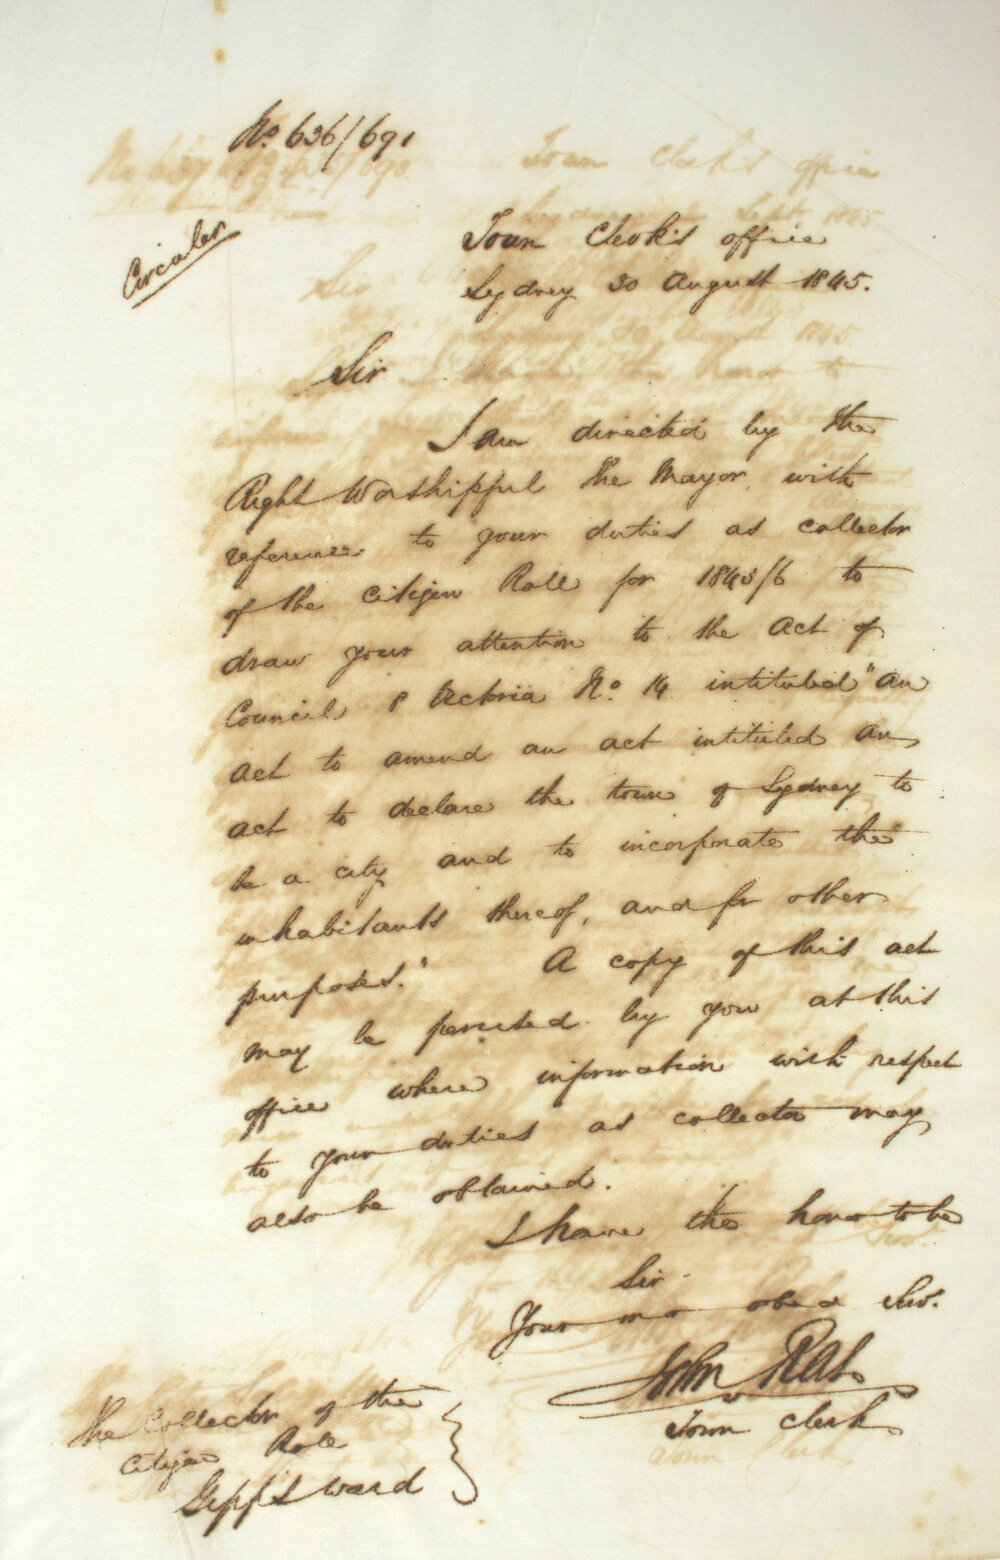 No 636/691
Circular
Town Clerk's office
Sydney 30 August 1845.
Sir
I am directed by the
Right Worshipful the Mayor, with
reference to your duties as collector
of the Citizen Roll for 1845/6 to
draw your attention to the Act of
Council 8 Victoria No. 14 intituled "An
act to amend an act intituled An
act to declare the town of Sydney to
be a city and to incorporate the
inhabitants thereof, and for other
purposes." A copy of this act
may be perused by you at this
office where information with respect
to your duties as collector may
also be obtained.
I have the honor to be
Sir
Your mo obed Serv.
John Rae
Town Clerk
The Collector of the
Citizen Roll
Gipps Ward